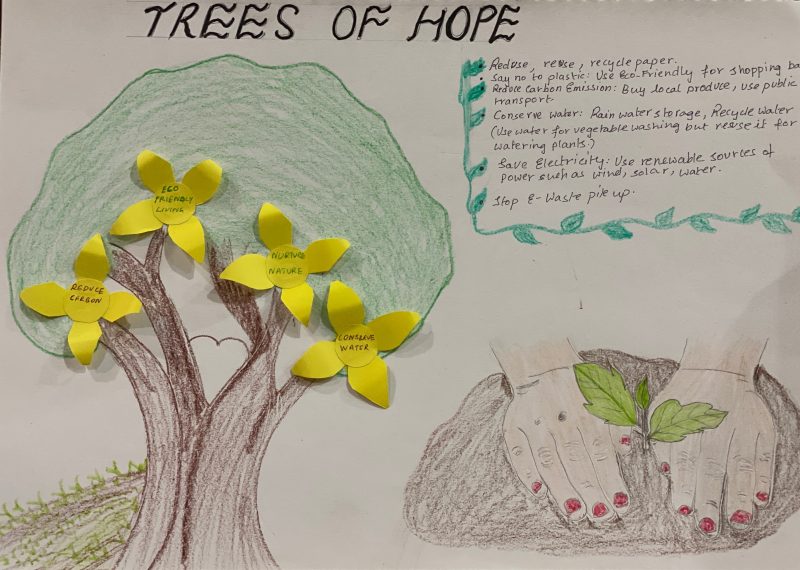 TREES OF HOPE
Reduse, reuse, recycle paper.
Say no to plastic: Use Eco-Friendly for shopping ba
Reduce Carbon Emission: Buy local produce, use public
transport
Conserve water: Rain water storage, Recycle water
(Use water for vegetable washing but reuse it for
watering plants.)
Save Electricity: Use renewable sources of
power such as wind, solar, water.
Stop E-Waste pile up.
ECO
FRIENDLY
LIVING
NURTURE
NATURE
REDUCE
CARBON
CONSERVE
WATER